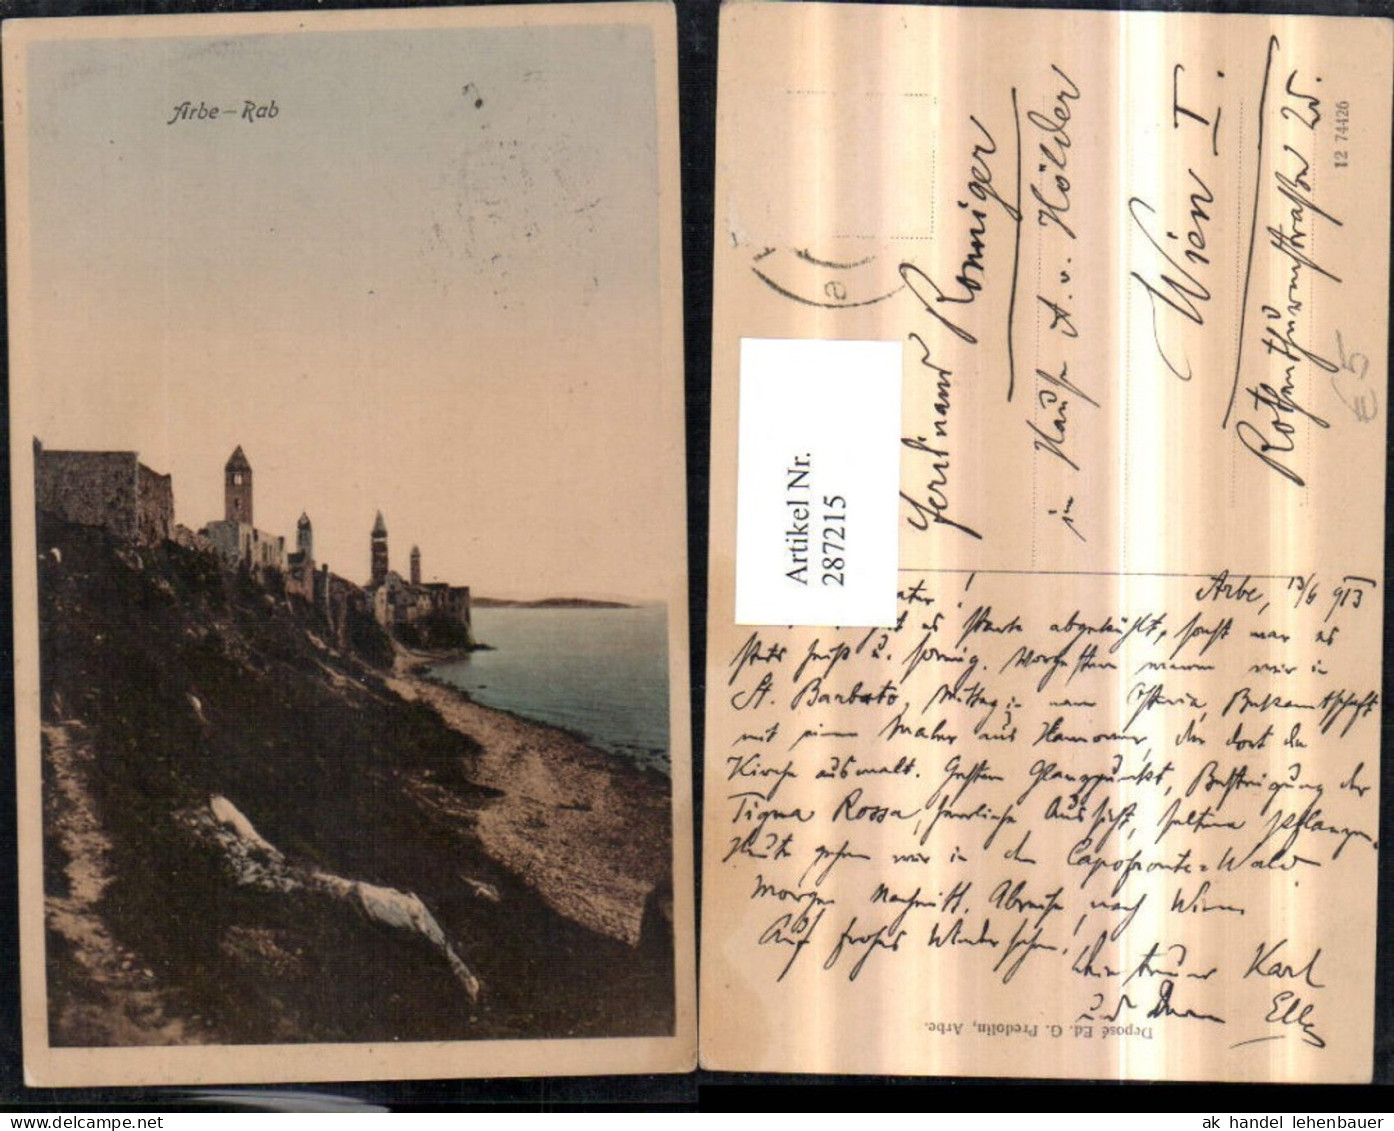 Arbe – Rab
Ferdinand Ronniger
in Hause A. v. Hölder
Wien I.
Rothenthurmstraße 25.
12 74426
E5
Artikel Nr.
287215
Arbe, 13/6 913
es starke abgekühlt, sonst war es
stets heiß u. sonnig. Vorgestern waren wir in
St. Barbato, Mittag in Bekanntschaft
mit einem Maler aus Hannover, der dort die
Kirche ausmalt. Gestern Glanzpunkt, Besteigung der
Tigna Rossa, herrliche Aussicht, seltene Pflanzen.
Heute gehen wir in den Capofronte-Wald
Morgen Nachmitt. Abreise nach Wien
Auf frohes Wiedersehen!
Dein treuer Karl
und Deine Elly
Deposé Ed. G. Predolin, Arbe.
ak handel lehenbauer